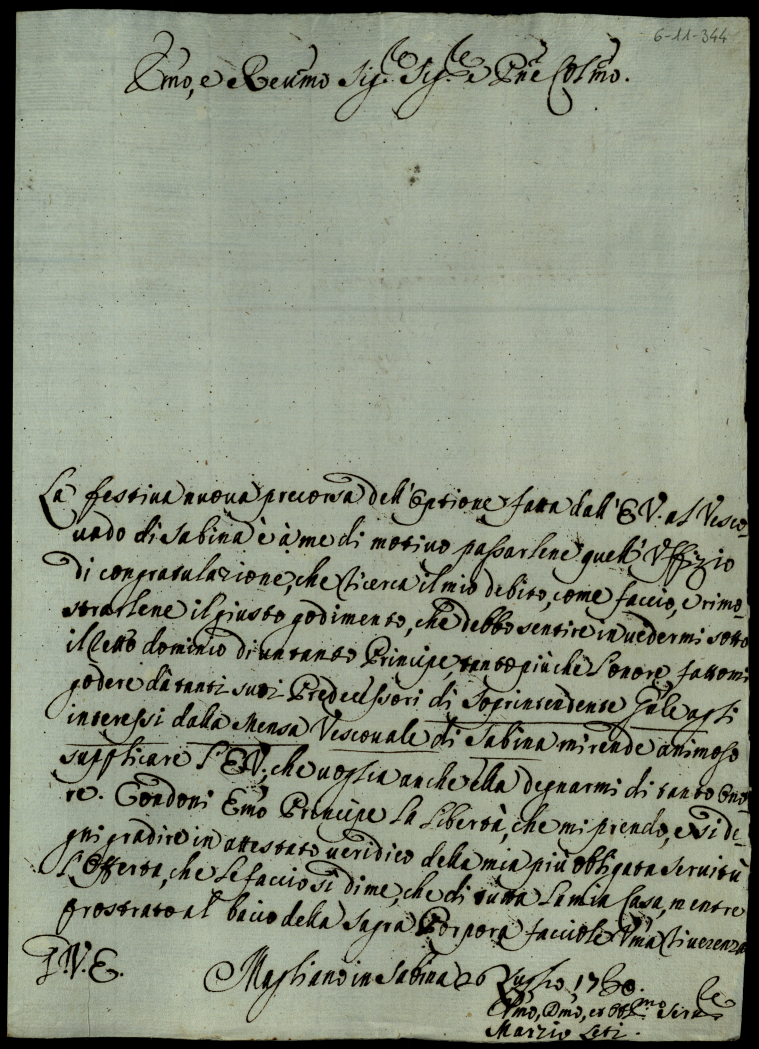 6-11-344
Emo, e Revmo Sig.re Sig.re e Pne Colmo.
La festiva nuova precorsa dell'Optione fatta dall'E V. al Vesco-
vado di Sabina è à me di motivo passarlene quell'Vffizio
di congratulazione, che ricerca il mio debito, come faccio, e rimo-
strarlene il giusto godimento, che debbo sentire in vedermi sotto
il retto dominio di un tanto Principe, tanto più che l'onore fattomi
godere dà tanti suoi Predecessori di Soprintendente Gnle agli
interessi dalla Mensa Vescovale di Sabina mi rende animoso
supplicare l'E V., che voglia anche ella degnarmi di tanto Ono-
re. Condoni Emo Principe la libertà, che mi prendo, e si de-
gni gradire in attestato veridico della mia più obligata servitù
l'Offerta, che le faccio sì di me, che di tutta la mia Casa, mentre
prostrato al bacio della Sagra Porpora facciole Vma riverenza
D.V.E.
Magliano in Sabina 26 Luglio 17
Vmo, Dmo, et Obmo Serre
Marzio Leti.